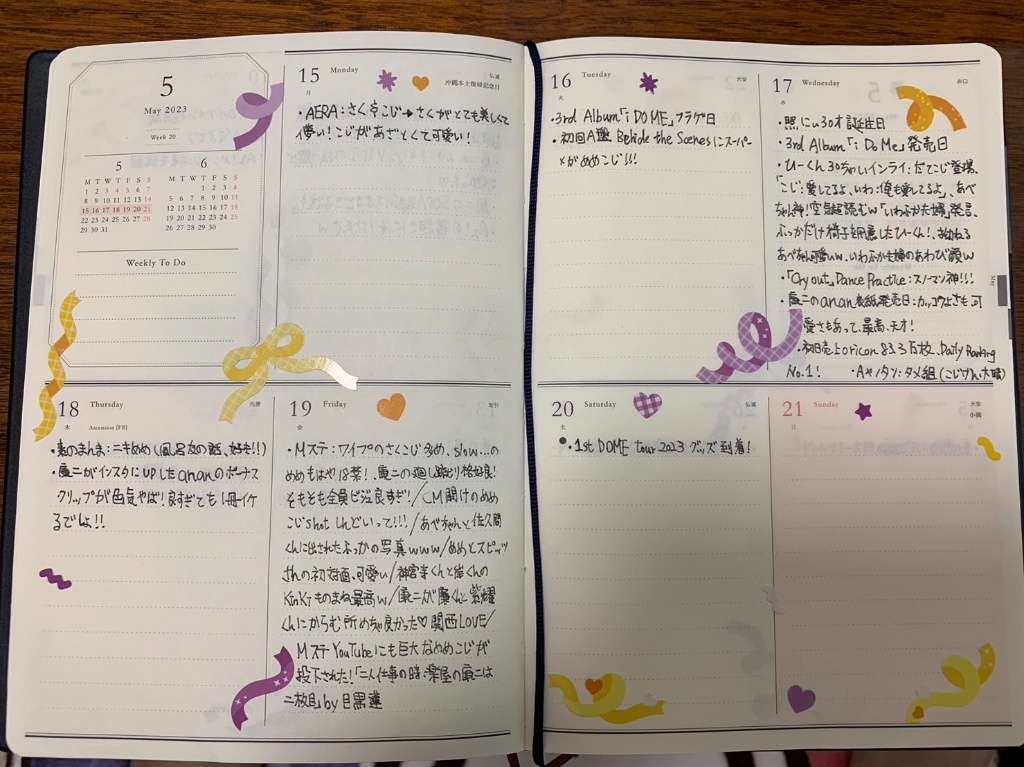 5
May 2023
Week 20
5
M T W T F S S
1 2 3 4 5 6 7
8 9 10 11 12 13 14
15 16 17 18 19 20 21
22 23 24 25 26 27 28
29 30 31
6
M T W T F S S
1 2 3 4
5 6 7 8 9 10 11
12 13 14 15 16 17 18
19 20 21 22 23 24 25
26 27 28 29 30
Weekly To Do
15 Monday 仏滅
月 沖縄本土復帰記念日
・AERA:さく　こじ→さくがとても美しくて
儚い!こじがあざとくて可愛い!
16 Tuesday 大安
火
・3rd Album「i DO ME」フラゲ日
・初回A盤 Behide the Scenesにスーパー
めがめめこじ!!!
17 Wednesday 赤口
水
・照にい30才誕生日
・3rd Album「i Do Me」発売日
・ひーくん30ちゃいインライ:だてこじ登場、
「こじ:愛してるよ、いわ:俺も愛してるよ」、あべ
ちゃん神!空気超読むw「いわふか夫婦」発言、
ふっかだけ椅子を用意したひーくん!、
あべちゃん可愛いw、いわふか夫婦のあわび顔w
・「Cry out」Dance Practice:スノーマン神!!!
・康二のanan表紙発売日:カッコウよさも可
愛さもあって、最高、天才!
・初日売上oricon 83.3万枚、Daily Ranking
No.1! ・Aキノタン:タメ組(こじ
May
18 Thursday 先勝
木 Ascension [FR]
・素のまんま:ニキめめ(風呂友の話、好き!!)
・康二がインスタにUPしたananのボーナス
クリップが色気やば!良すぎてもう1冊イケ
るでしょ!!
19 Friday 友引
金
・Mステ:ワイプのさくこじ多め、slow...の
めめもはや18禁!、康二の廻し蹴り格好良!
そもそも全員ビジュ良すぎ!/CM開けのめめ
こじshotしんどいって!!!/あべちゃんと佐久間
くんに出されたふっかの写真www/めめとスピッツ
さんの初対面、可愛い/神宮寺くんと岸くんの
KinKiものまね最高w/康二が廉くんと紫耀
くんにからむ所めちゃ良かった♡関西LOVE/
MステYouTubeにも巨大なめめこじが
投下された!「二人仕事の時:楽屋の康二は
二枚目」by 目黒蓮
20 Saturday 仏滅
土
・1st DOME tour 2023 グッズ到着!
21 Sunday 大安
日 小満